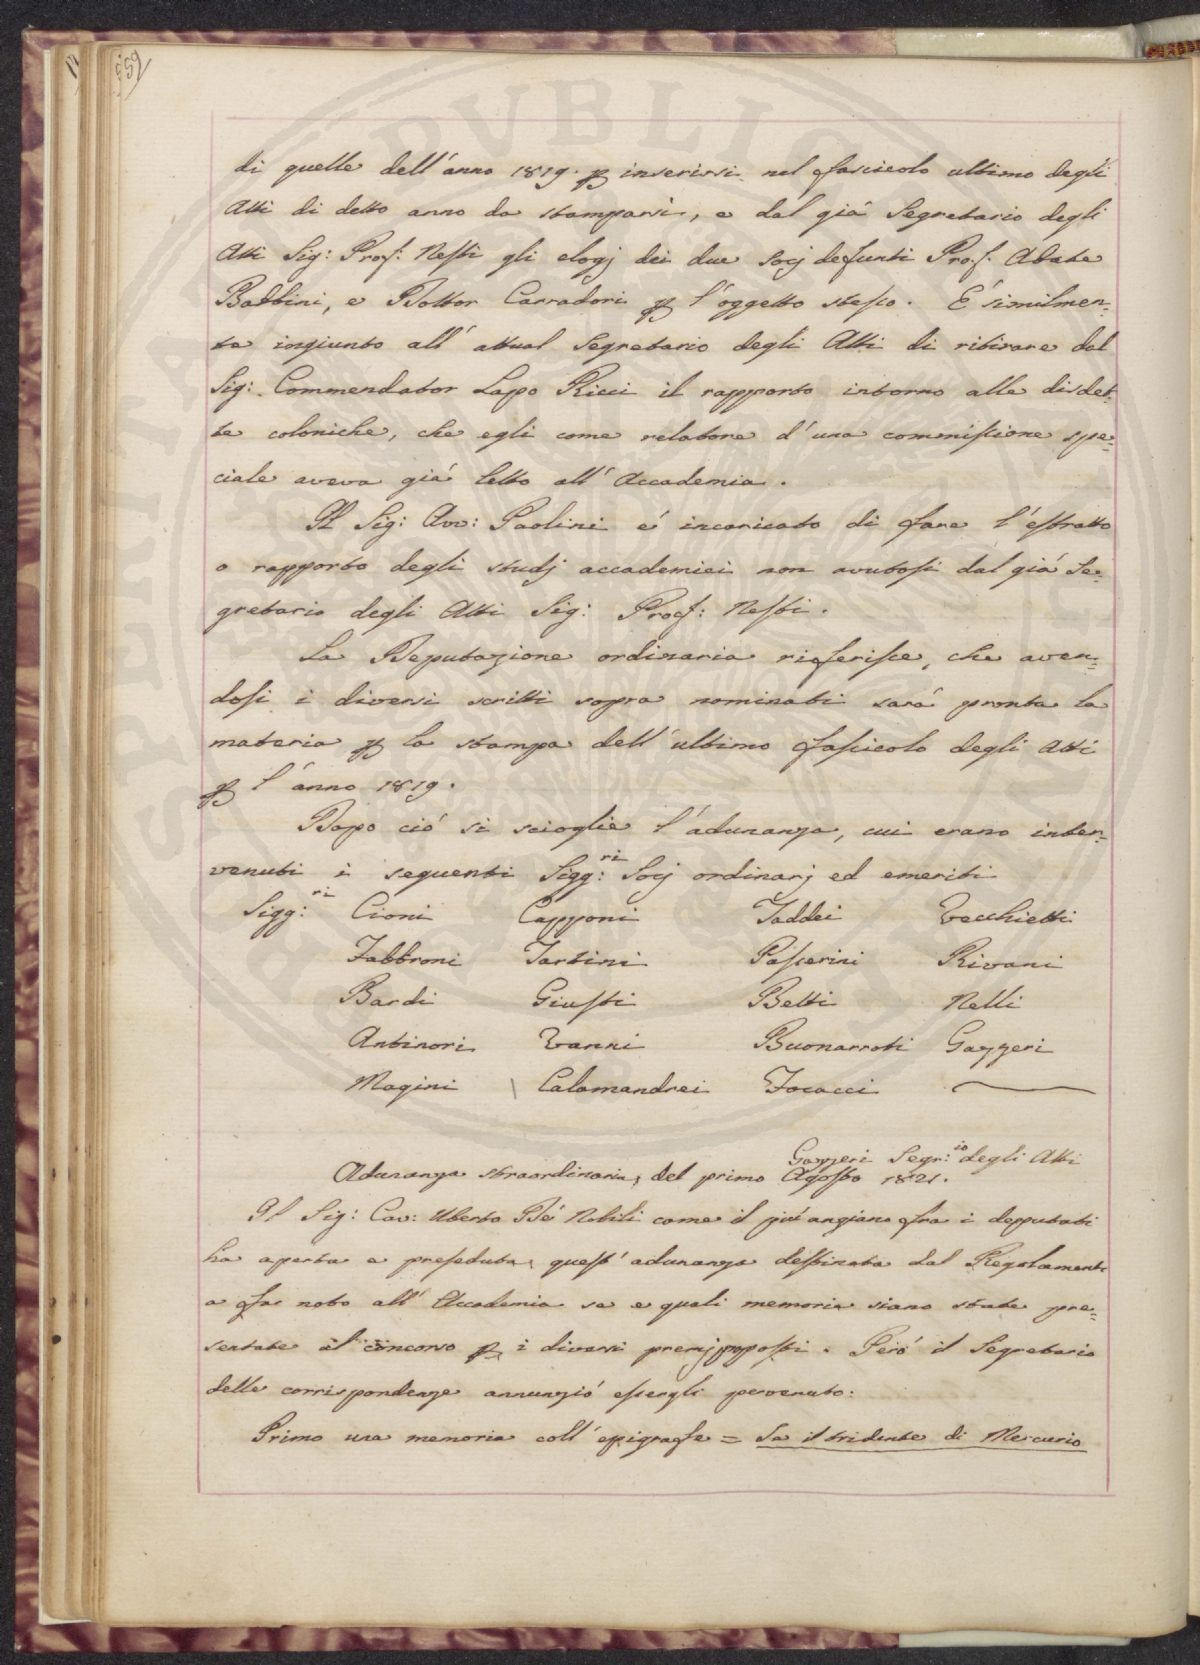 552
di quelle dell'anno 1819. p inserirsi nel fascicolo ultimo degli
Atti di detto anno da stamparsi, e dal già Segretario degli
Atti Sig: Prof: Nesti gli elogj dei due Socj defunti Prof. Abate
Babbini, e Dottor Carradori p l'oggetto stesso. E' similmen=
te ingiunto all'attual Segretario degli Atti di ritirare dal
Sig: Commendator Lapo Ricci il rapporto intorno alle disdet=
te coloniche, che egli come relatore d'una commissione spe=
ciale aveva già letto all'Accademia.
Il Sig: Avv: Paolini è incaricato di fare l'estratto
o rapporto degli studj accademici non avutosi dal già Se=
gretario degli Atti Sig: Prof: Nesti.
La Deputazione ordinaria riferisce, che aven=
dosi i diversi scritti sopra nominati sarà pronta la
materia p la stampa dell'ultimo fascicolo degli Atti
p l'anno 1819.
Dopo ciò si scioglie l'adunanza, cui erano inter=
venuti i seguenti Sigg:ri Socj ordinarj ed emeriti
Sigg:ri Cioni Capponi Taddei Vecchietti
Fabbroni Tartini Passerini Rivani
Bardi Giusti Betti Nelli
Antinori Vanni Buonarroti Gazzeri
Magini Calamandrei Focacci
Gazzeri Segr:io degli Atti
Adunanza straordinaria del primo Agosto 1821.
Il Sig: Cav: Uberto De' Nobili come il più anziano fra i deputati
ha aperta e preseduta quest'adunanza destinata dal Regolamento
a far noto all'Accademia se e quali memorie siano state pre=
sentate al concorso p i diversi premj proposti. Però il Segretario
delle corrispondenze annunziò essergli pervenuto:
Primo una memoria coll'epigrafe = Se il tridente di Mercurio